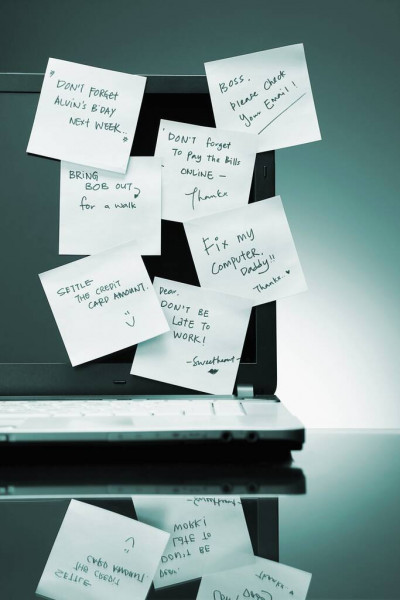 "DON'T FORGET
ALVIN'S B'DAY
NEXT WEEK...
"
BOSS.
Please Check
your Email!
DON'T forget
To pay the Bills
ONLINE —
Thanks
BRING
BOB OUT
for a walk
Fix my
Computer.
Daddy!!
Thanks.
SETTLE
THE CREDIT
CARD AMOUNT.
Dear.
DON'T BE
LATE TO
WORK!
-Sweetheart-